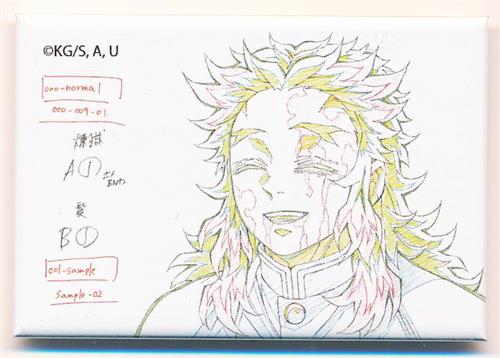 ©KG/S, A, U
000-normal
000-009-01
煉獄
A①
END
髪
B①
001-sample
sample-02